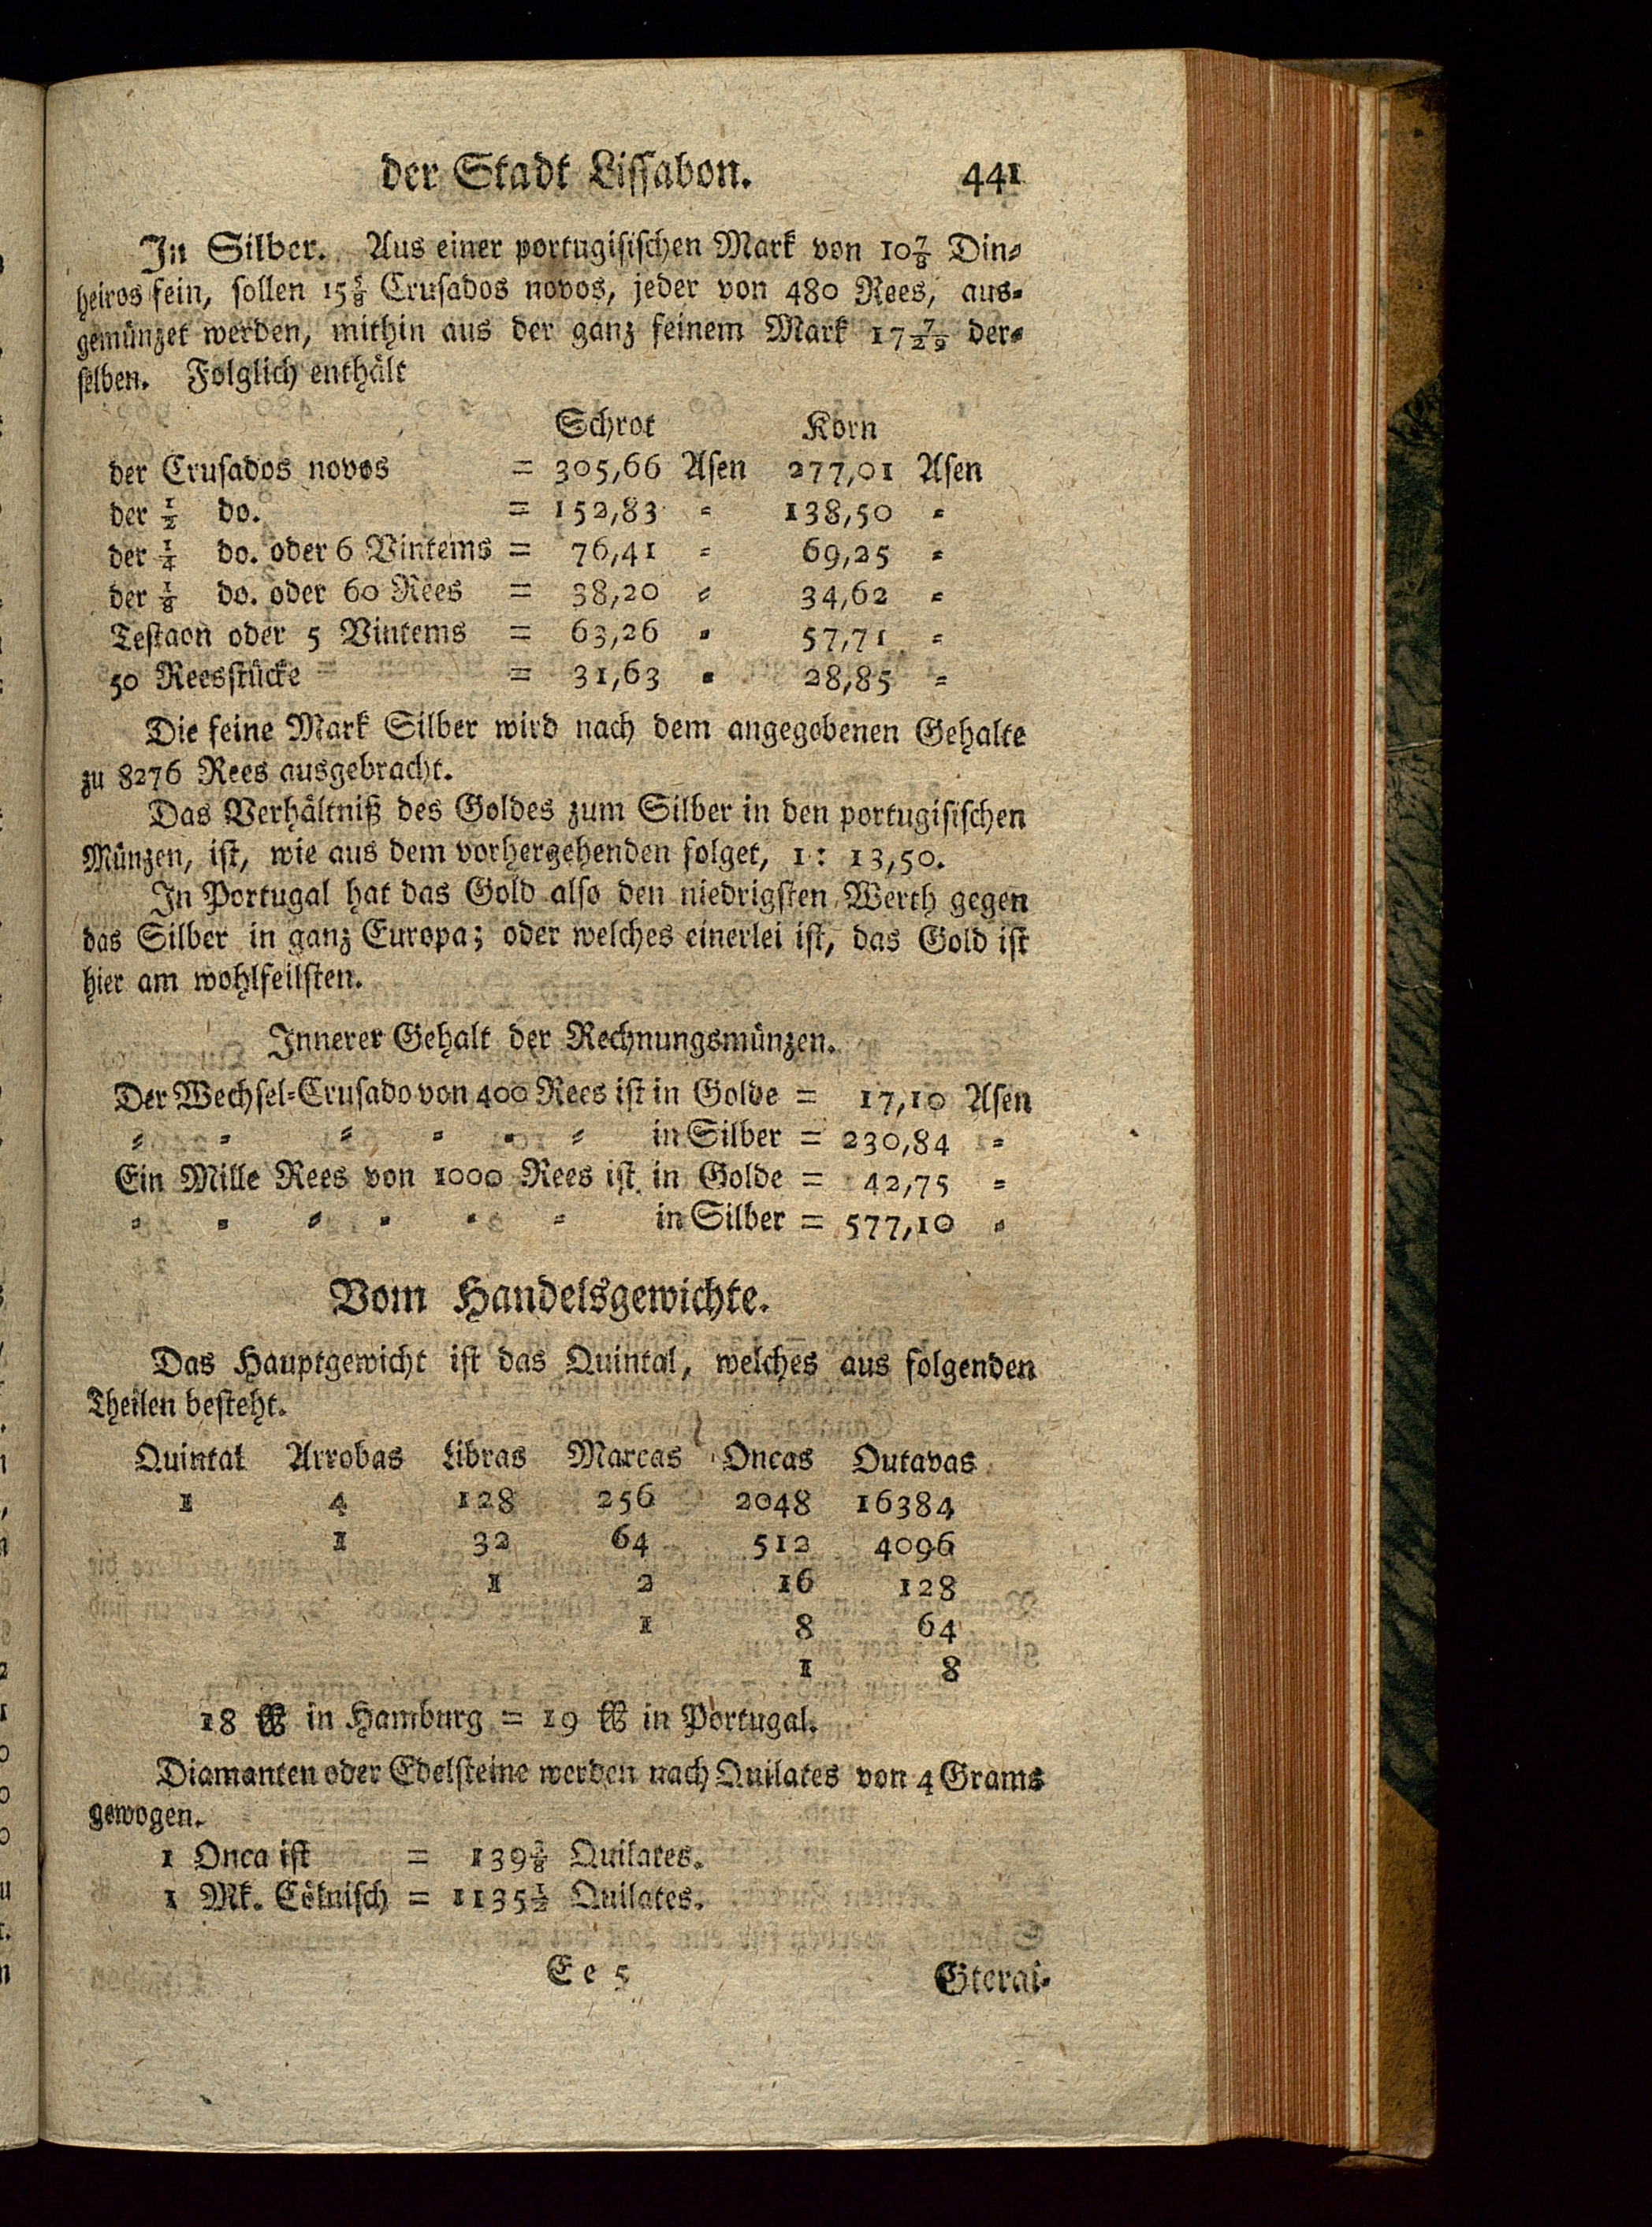 der Stadt Lissabon. 441
In Silber. Aus einer portugisischen Mark von 10⅞ Din-
heiros fein, sollen 15⅝ Crusados novos, jeder von 480 Rees, aus-
gemünzet werden, mithin aus der ganz feinem Mark 17 7/29 der-
selben. Folglich enthält
Schrot Korn
der Crusados novos = 305,66 Asen 277,01 Asen
der ½ do. = 152,83 - 138,50 -
der ¼ do. oder 6 Vintems = 76,41 - 69,25 -
der ⅛ do. oder 60 Rees = 38,20 - 34,62 -
Testaon oder 5 Vintems = 63,26 - 57,71 -
50 Reesstücke = 31,63 - 28,85 -
Die feine Mark Silber wird nach dem angegebenen Gehalte
zu 8276 Rees ausgebracht.
Das Verhältniß des Goldes zum Silber in den portugisischen
Münzen, ist, wie aus dem vorhergehenden folget, 1 : 13,50.
In Portugal hat das Gold also den niedrigsten Werth gegen
das Silber in ganz Europa; oder welches einerlei ist, das Gold ist
hier am wohlfeilsten.
Innerer Gehalt der Rechnungsmünzen.
Der Wechsel-Crusado von 400 Rees ist in Golde = 17,10 Asen
- - - - - - in Silber = 230,84 -
Ein Mille Rees von 1000 Rees ist in Golde = 42,75 -
- - - - - - in Silber = 577,10 -
Vom Handelsgewichte.
Das Hauptgewicht ist das Quintal, welches aus folgenden
Theilen besteht.
Quintal Arrobas Libras Marcas Oncas Outavas
1 4 128 256 2048 16384
1 32 64 512 4096
1 2 16 128
1 8 64
1 8
18 ℔ in Hamburg = 19 ℔ in Portugal.
Diamanten oder Edelsteine werden nach Quilates von 4 Grams
gewogen.
1 Onca ist = 139 Quilates.
1 Mk. Cölnisch = 1135½ Quilates.
E e 5 Gterai-